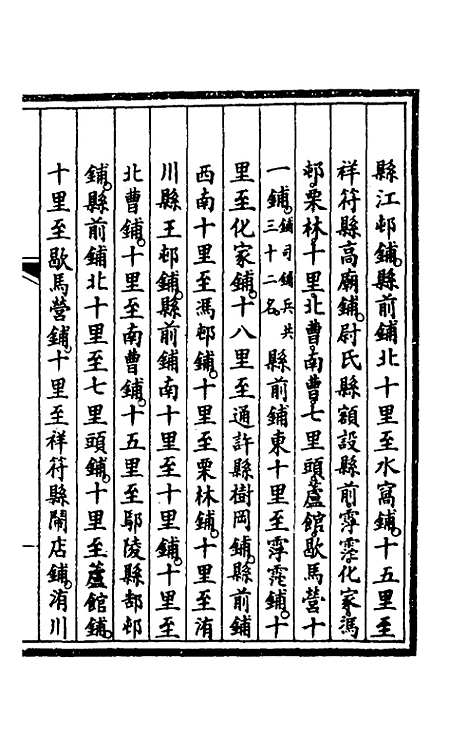 縣江邨鋪縣前鋪北十里至水窩鋪十五里至
祥符縣高廟鋪尉氏縣額設縣前霶霶化家馮
邨栗林十里北曹南曹七里頭蘆館歇馬營十
一鋪鋪司鋪兵共三十二名縣前鋪東十里至霶霶鋪十
里至化家鋪十八里至通許縣樹岡鋪縣前鋪
西南十里至馮邨鋪十里至栗林鋪十里至洧
川縣王邨鋪縣前鋪南十里至十里鋪十里至
北曹鋪十里至南曹鋪十五里至鄢陵縣郝邨
鋪縣前鋪北十里至七里頭鋪十里至蘆館鋪
十里至歇馬營鋪十里至祥符縣鬧店鋪洧川